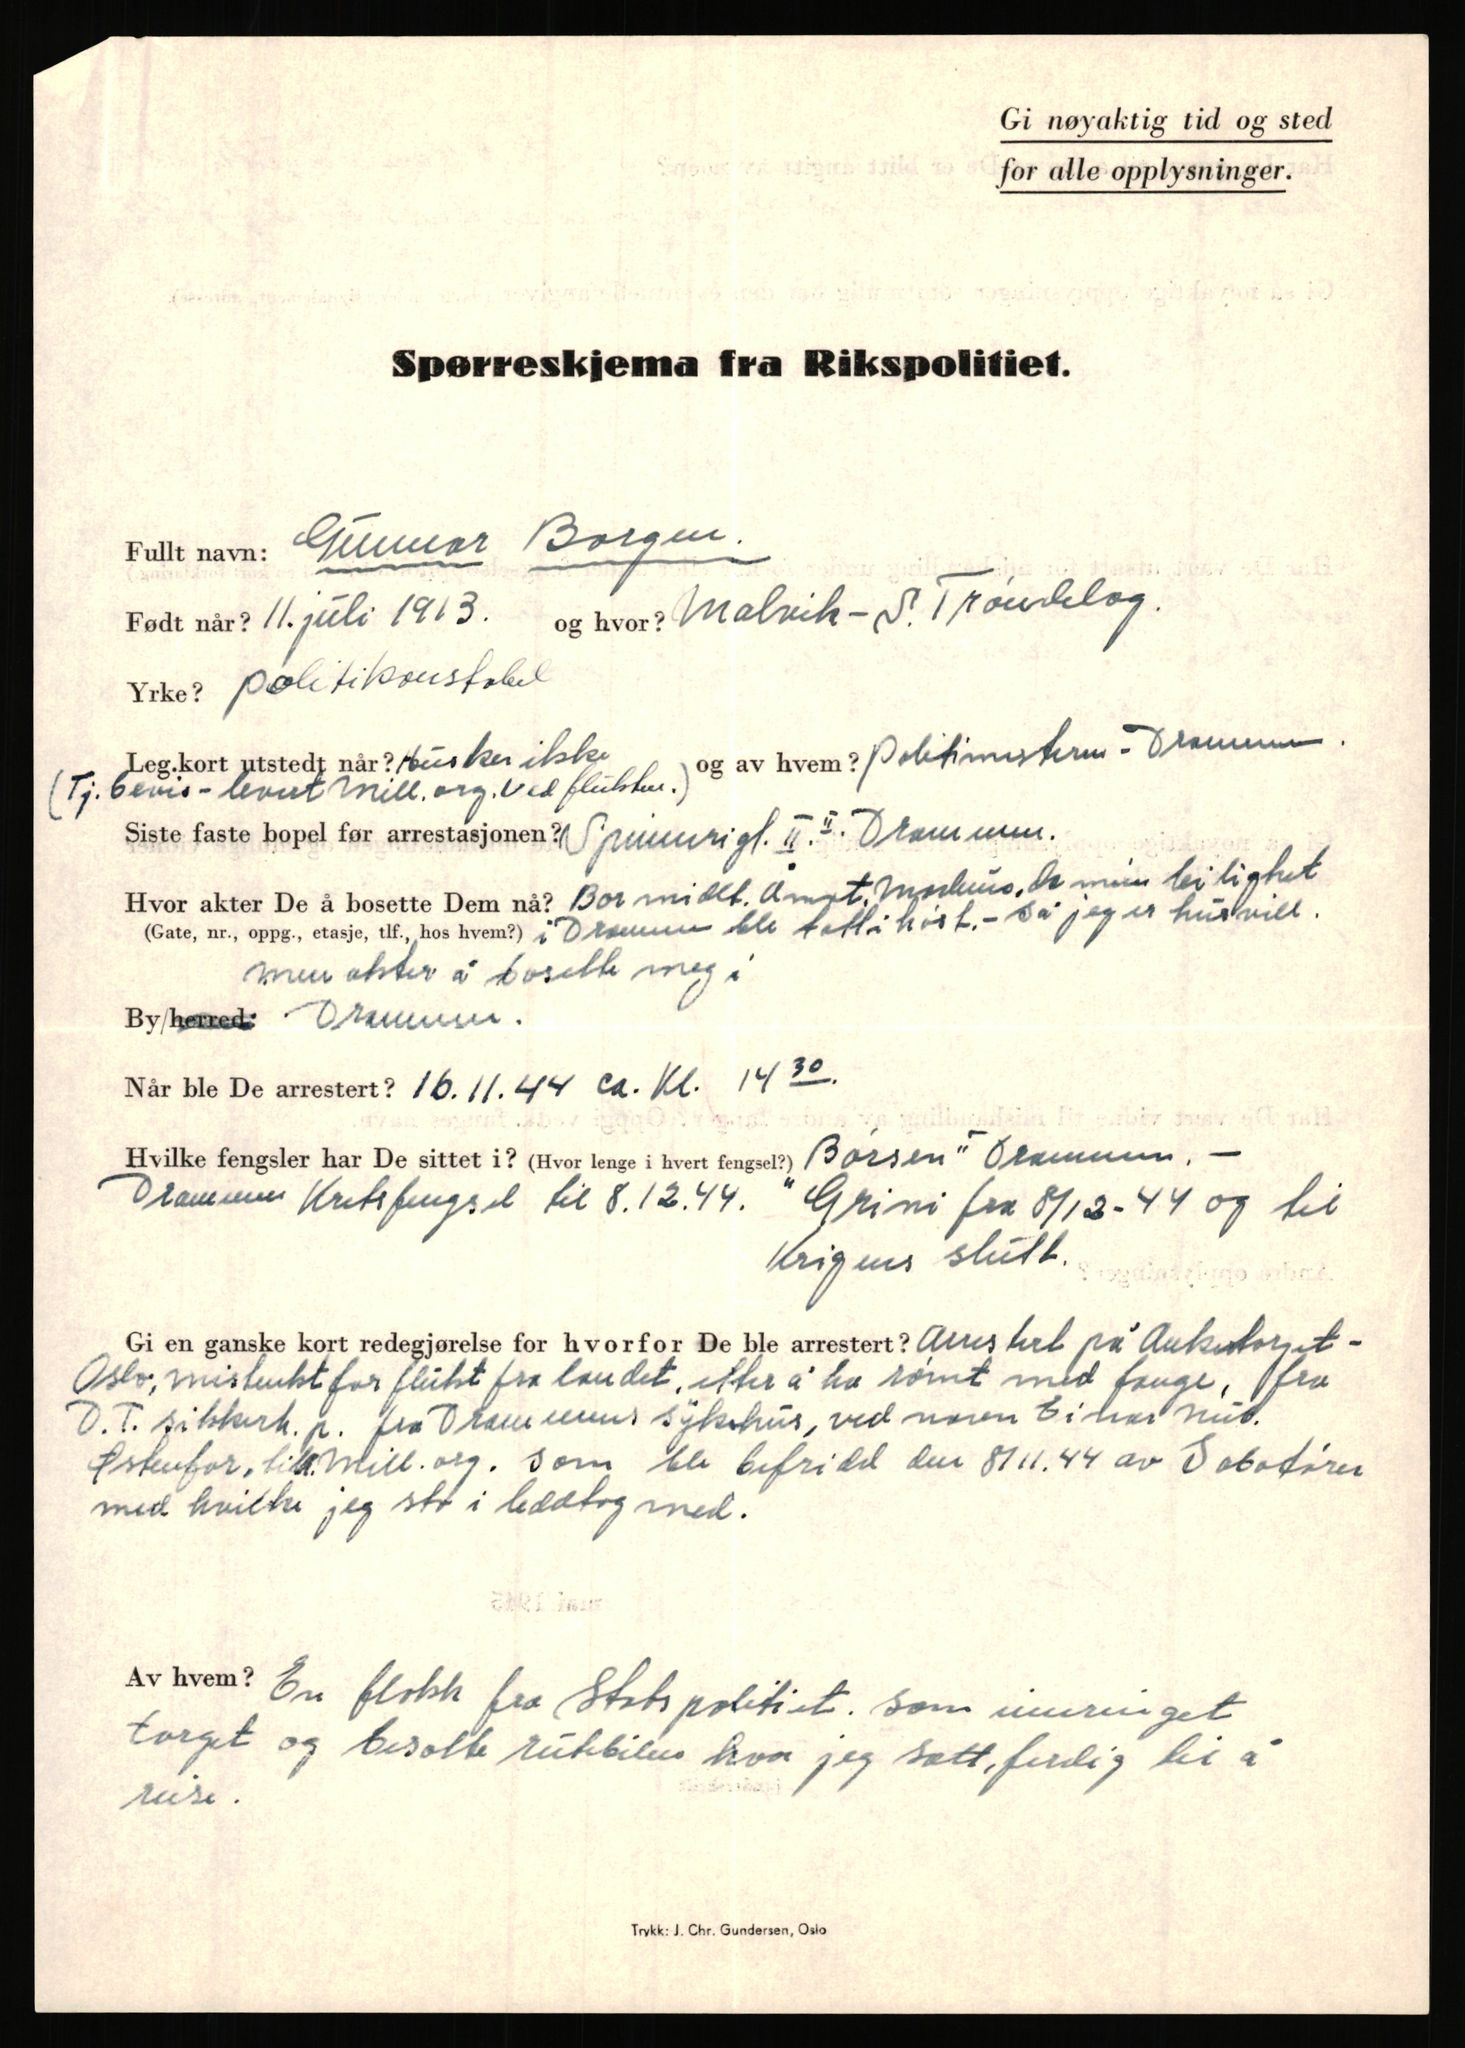 Gi nøyaktig tid og sted
for alle opplysninger.
Spørreskjema fra Rikspolitiet.
Fullt navn: Gunnar Borgen.
Født når? 11. juli 1913. og hvor? Malvik - S. Trøndelag.
Yrke? politikonstabel
Leg.kort utstedt når? Husker ikke og av hvem? Politimesteren - Drammen.
(Tj. bevis - levert Mill. org. ved flukten.)
Siste faste bopel før arrestasjonen? II. Drammen.
Hvor akter De å bosette Dem nå? Bor midl. da min leilighet
(Gate, nr., oppg., etasje, tlf., hos hvem?) i Drammen ble tatt i høst. - så jeg er husvill.
men akter å bosette meg i
By/herred: Drammen.
Når ble De arrestert? 16.11.44 ca. kl. 14 30.
Hvilke fengsler har De sittet i? (Hvor lenge i hvert fengsel?) "Børsen" Drammen. -
Drammen Kretsfengsel til 8.12.44. Grini fra 8/12-44 og til
krigens slutt.
Gi en ganske kort redegjørelse for hvorfor De ble arrestert? Arrestert på Ankertorget -
Oslo, mistenkt for flukt fra landet, etter å ha rømt med fange, fra
D.T. sikkerh. p. fra Drammens sykehus, ved navn Einar
Østenfor, Mill. org. som ble befridd den 8/11.44 av Sabotører
med hvilke jeg sto i leddtog med.
Av hvem? En flokk fra Statspolitiet. som innringet
torget og besatte rutebilen hvor jeg satt, ferdig til å
reise.
Trykk: J. Chr. Gundersen, Oslo